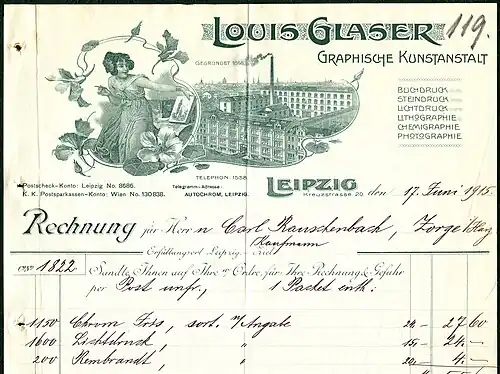 LOUIS GLASER
119.
GRAPHISCHE KUNSTANSTALT
GEGRÜNDET
BUCHDRUCK
STEINDRUCK
LICHTDRUCK
LITHOGRAPHIE
CHEMIGRAPHIE
PHOTOGRAPHIE
TELEPHON 1558.
Postscheck-Konto: Leipzig No. 8686.
K. K. Postsparkassen-Konto: Wien No. 130838.
Telegramm-Adresse:
AUTOCHROM, LEIPZIG.
LEIPZIG
Kreuzstrasse 20
den 17. Juni 1915
Rechnung für Herrn Carl Rauschenbach, Zorge i/Harz
Kaufmann
Erfüllungsort Leipzig
1822 Sandte Ihnen auf Ihre w. Ordre, für Ihre Rechnung & Gefahr
per Post unfr., 1 Packet enth:
1150 Chrom Iris, sort. n/Angabe 24 – 27 60
1600 Lichtdruck, " 15 – 24 –
200 Rembrandt, " 20 – 4 –